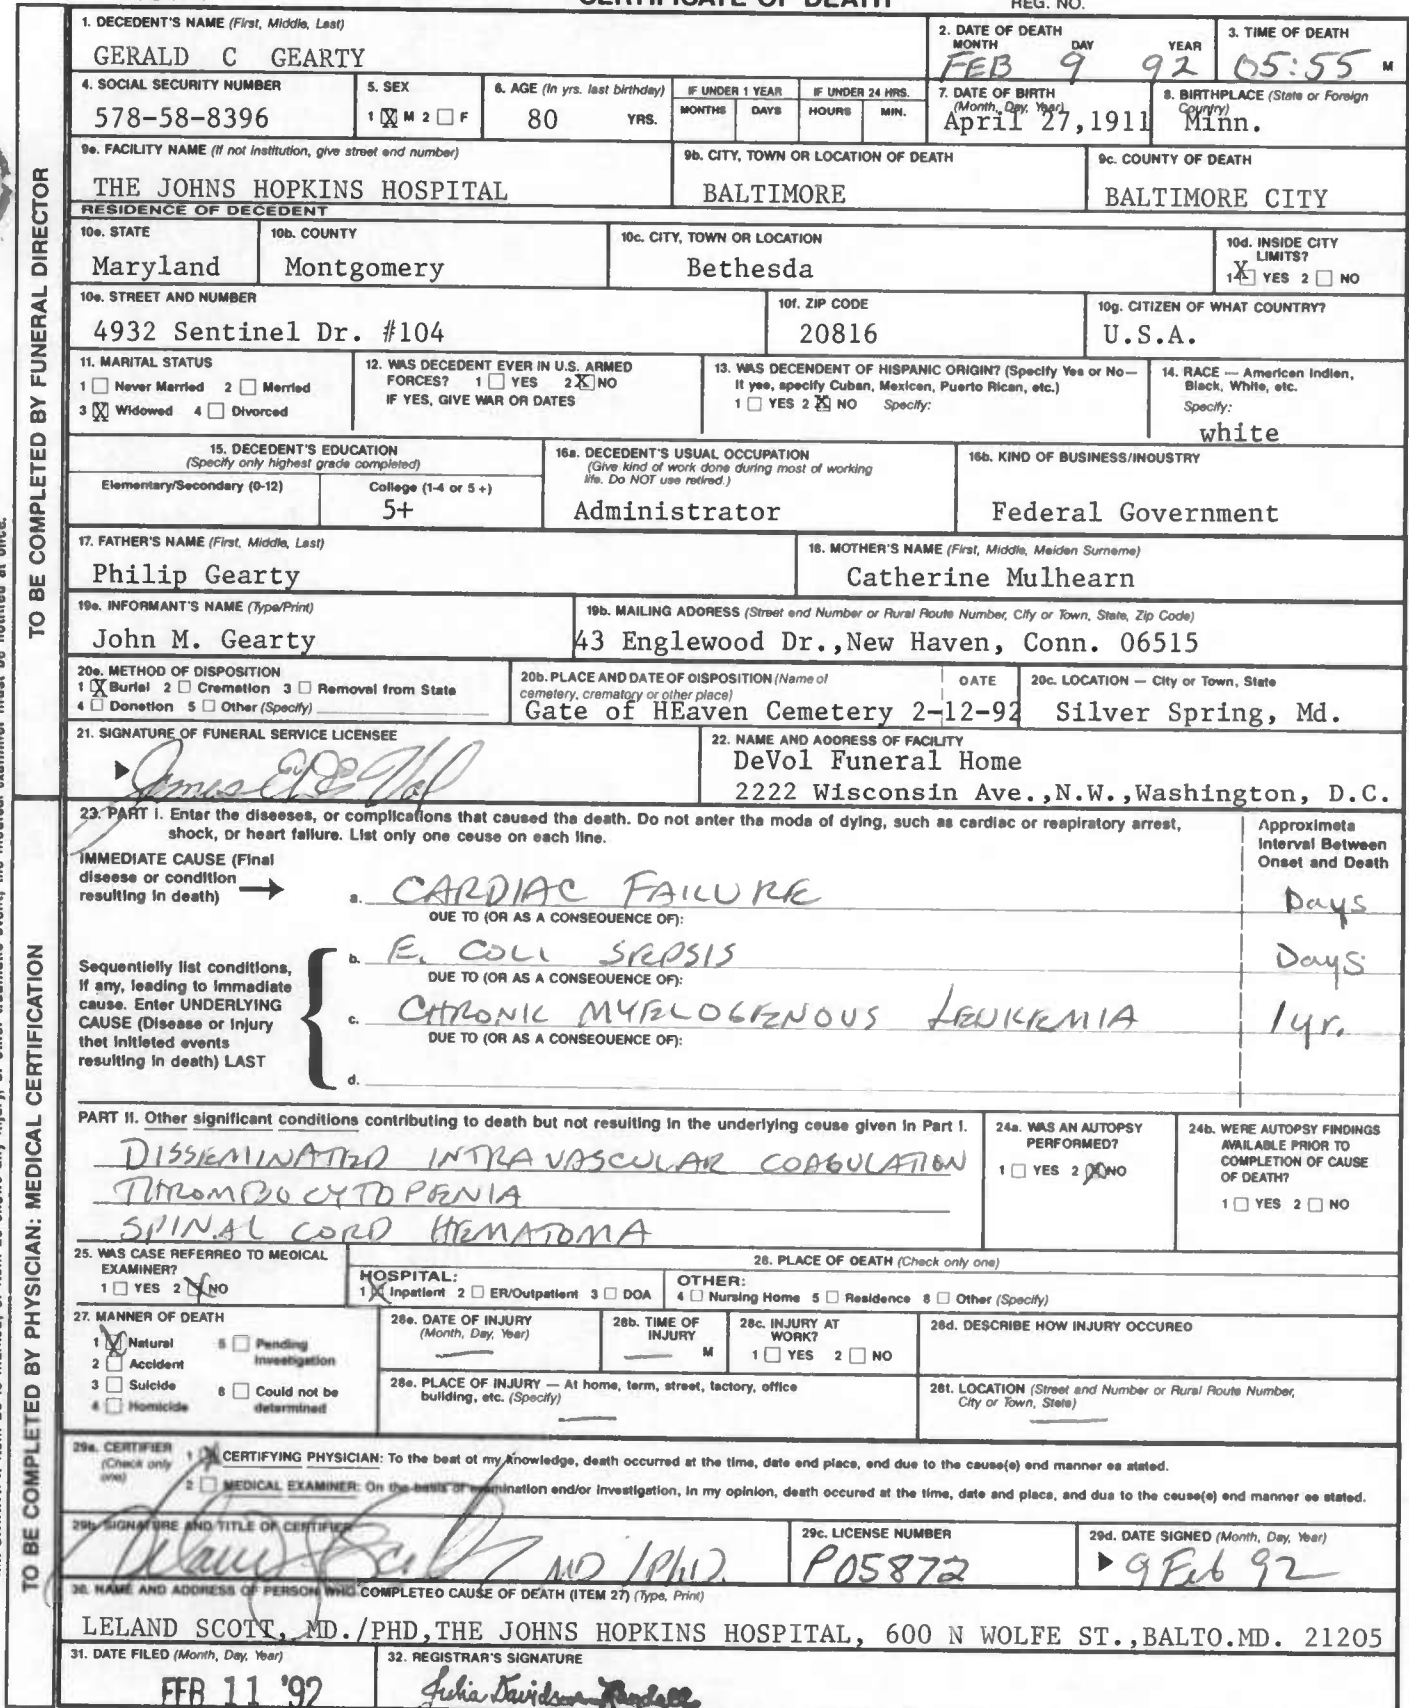 CERTIFICATE OF DEATH
REG. NO.
TO BE COMPLETED BY FUNERAL DIRECTOR
1. DECEDENT'S NAME (First, Middle, Last)
GERALD C GEARTY
2. DATE OF DEATH
MONTH DAY YEAR
FEB 9 92
3. TIME OF DEATH
05:55 M
4. SOCIAL SECURITY NUMBER
578-58-8396
5. SEX
1 X M 2 F
6. AGE (In yrs. last birthday)
80 YRS.
IF UNDER 1 YEAR
MONTHS DAYS
IF UNDER 24 HRS.
HOURS MIN.
7. DATE OF BIRTH
(Month, Day, Year)
April 27,1911
8. BIRTHPLACE (State or Foreign
Country)
Minn.
9a. FACILITY NAME (If not institution, give street end number)
THE JOHNS HOPKINS HOSPITAL
9b. CITY, TOWN OR LOCATION OF DEATH
BALTIMORE
9c. COUNTY OF DEATH
BALTIMORE CITY
RESIDENCE OF DECEDENT
10a. STATE
Maryland
10b. COUNTY
Montgomery
10c. CITY, TOWN OR LOCATION
Bethesda
10d. INSIDE CITY
LIMITS?
1 X YES 2 NO
10e. STREET AND NUMBER
4932 Sentinel Dr. #104
10f. ZIP CODE
20816
10g. CITIZEN OF WHAT COUNTRY?
U.S.A.
11. MARITAL STATUS
1 Never Married 2 Married
3 X Widowed 4 Divorced
12. WAS DECEDENT EVER IN U.S. ARMED
FORCES? 1 YES 2 X NO
IF YES, GIVE WAR OR DATES
13. WAS DECENDENT OF HISPANIC ORIGIN? (Specify Yes or No—
It yes, specify Cuban, Mexican, Puerto Rican, etc.)
1 YES 2 X NO Specify:
14. RACE — American Indian,
Black, White, etc.
Specify:
white
15. DECEDENT'S EDUCATION
(Specify only highest grade completed)
Elementary/Secondary (0-12)
College (1-4 or 5 +)
5+
16a. DECEDENT'S USUAL OCCUPATION
(Give kind of work done during most of working
life. Do NOT use retired.)
Administrator
16b. KIND OF BUSINESS/INDUSTRY
Federal Government
17. FATHER'S NAME (First, Middle, Last)
Philip Gearty
18. MOTHER'S NAME (First, Middle, Maiden Surname)
Catherine Mulhearn
19a. INFORMANT'S NAME (Type/Print)
John M. Gearty
19b. MAILING ADDRESS (Street end Number or Rural Route Number, City or Town, State, Zip Code)
43 Englewood Dr.,New Haven, Conn. 06515
20a. METHOD OF DISPOSITION
1 X Burial 2 Cremation 3 Removal from State
4 Donation 5 Other (Specify)
20b. PLACE AND DATE OF DISPOSITION (Name of
cemetery, crematory or other place)
DATE
Gate of HEaven Cemetery 2-12-92
20c. LOCATION — City or Town, State
Silver Spring, Md.
21. SIGNATURE OF FUNERAL SERVICE LICENSEE
James E DeVol
22. NAME AND ADDRESS OF FACILITY
DeVol Funeral Home
2222 Wisconsin Ave.,N.W.,Washington, D.C.
TO BE COMPLETED BY PHYSICIAN: MEDICAL CERTIFICATION
23. PART I. Enter the diseases, or complications that caused the death. Do not enter the mode of dying, such as cardiac or respiratory arrest,
shock, or heart failure. List only one cause on each line.
Approximate
Interval Between
Onset and Death
IMMEDIATE CAUSE (Final
disease or condition
resulting in death)
a. CARDIAC FAILURE Days
DUE TO (OR AS A CONSEQUENCE OF):
Sequentially list conditions,
if any, leading to immediate
cause. Enter UNDERLYING
CAUSE (Disease or Injury
that initiated events
resulting in death) LAST
b. E. COLI SEPSIS Days
DUE TO (OR AS A CONSEQUENCE OF):
c. CHRONIC MYELOGENOUS LEUKEMIA 1 yr.
DUE TO (OR AS A CONSEQUENCE OF):
d.
PART II. Other significant conditions contributing to death but not resulting in the underlying cause given in Part I.
DISSEMINATED INTRAVASCULAR COAGULATION
THROMBOCYTOPENIA
SPINAL CORD HEMATOMA
24a. WAS AN AUTOPSY
PERFORMED?
1 YES 2 X NO
24b. WERE AUTOPSY FINDINGS
AVAILABLE PRIOR TO
COMPLETION OF CAUSE
OF DEATH?
1 YES 2 NO
25. WAS CASE REFERRED TO MEDICAL
EXAMINER?
1 YES 2 X NO
26. PLACE OF DEATH (Check only one)
HOSPITAL:
1 X Inpatient 2 ER/Outpatient 3 DOA
OTHER:
4 Nursing Home 5 Residence 6 Other (Specify)
27. MANNER OF DEATH
1 X Natural 5 Pending
2 Accident Investigation
3 Suicide 6 Could not be
4 Homicide determined
28a. DATE OF INJURY
(Month, Day, Year)
28b. TIME OF
INJURY
M
28c. INJURY AT
WORK?
1 YES 2 NO
28d. DESCRIBE HOW INJURY OCCURED
28e. PLACE OF INJURY — At home, term, street, factory, office
building, etc. (Specify)
28f. LOCATION (Street and Number or Rural Route Number,
City or Town, State)
29a. CERTIFIER
(Check only
one)
1 X CERTIFYING PHYSICIAN: To the best of my knowledge, death occurred at the time, date end place, end due to the cause(s) end manner as stated.
2 MEDICAL EXAMINER: On the basis of examination end/or investigation, in my opinion, death occured at the time, date and place, and due to the cause(s) end manner as stated.
29b. SIGNATURE AND TITLE OF CERTIFIER
MD / PhD.
29c. LICENSE NUMBER
P05872
29d. DATE SIGNED (Month, Day, Year)
9 Feb 92
30. NAME AND ADDRESS OF PERSON WHO COMPLETED CAUSE OF DEATH (ITEM 27) (Type, Print)
LELAND SCOTT, MD./PHD,THE JOHNS HOPKINS HOSPITAL, 600 N WOLFE ST.,BALTO.MD. 21205
31. DATE FILED (Month, Day, Year)
FEB 11 '92
32. REGISTRAR'S SIGNATURE
Julia Davidson-Randall